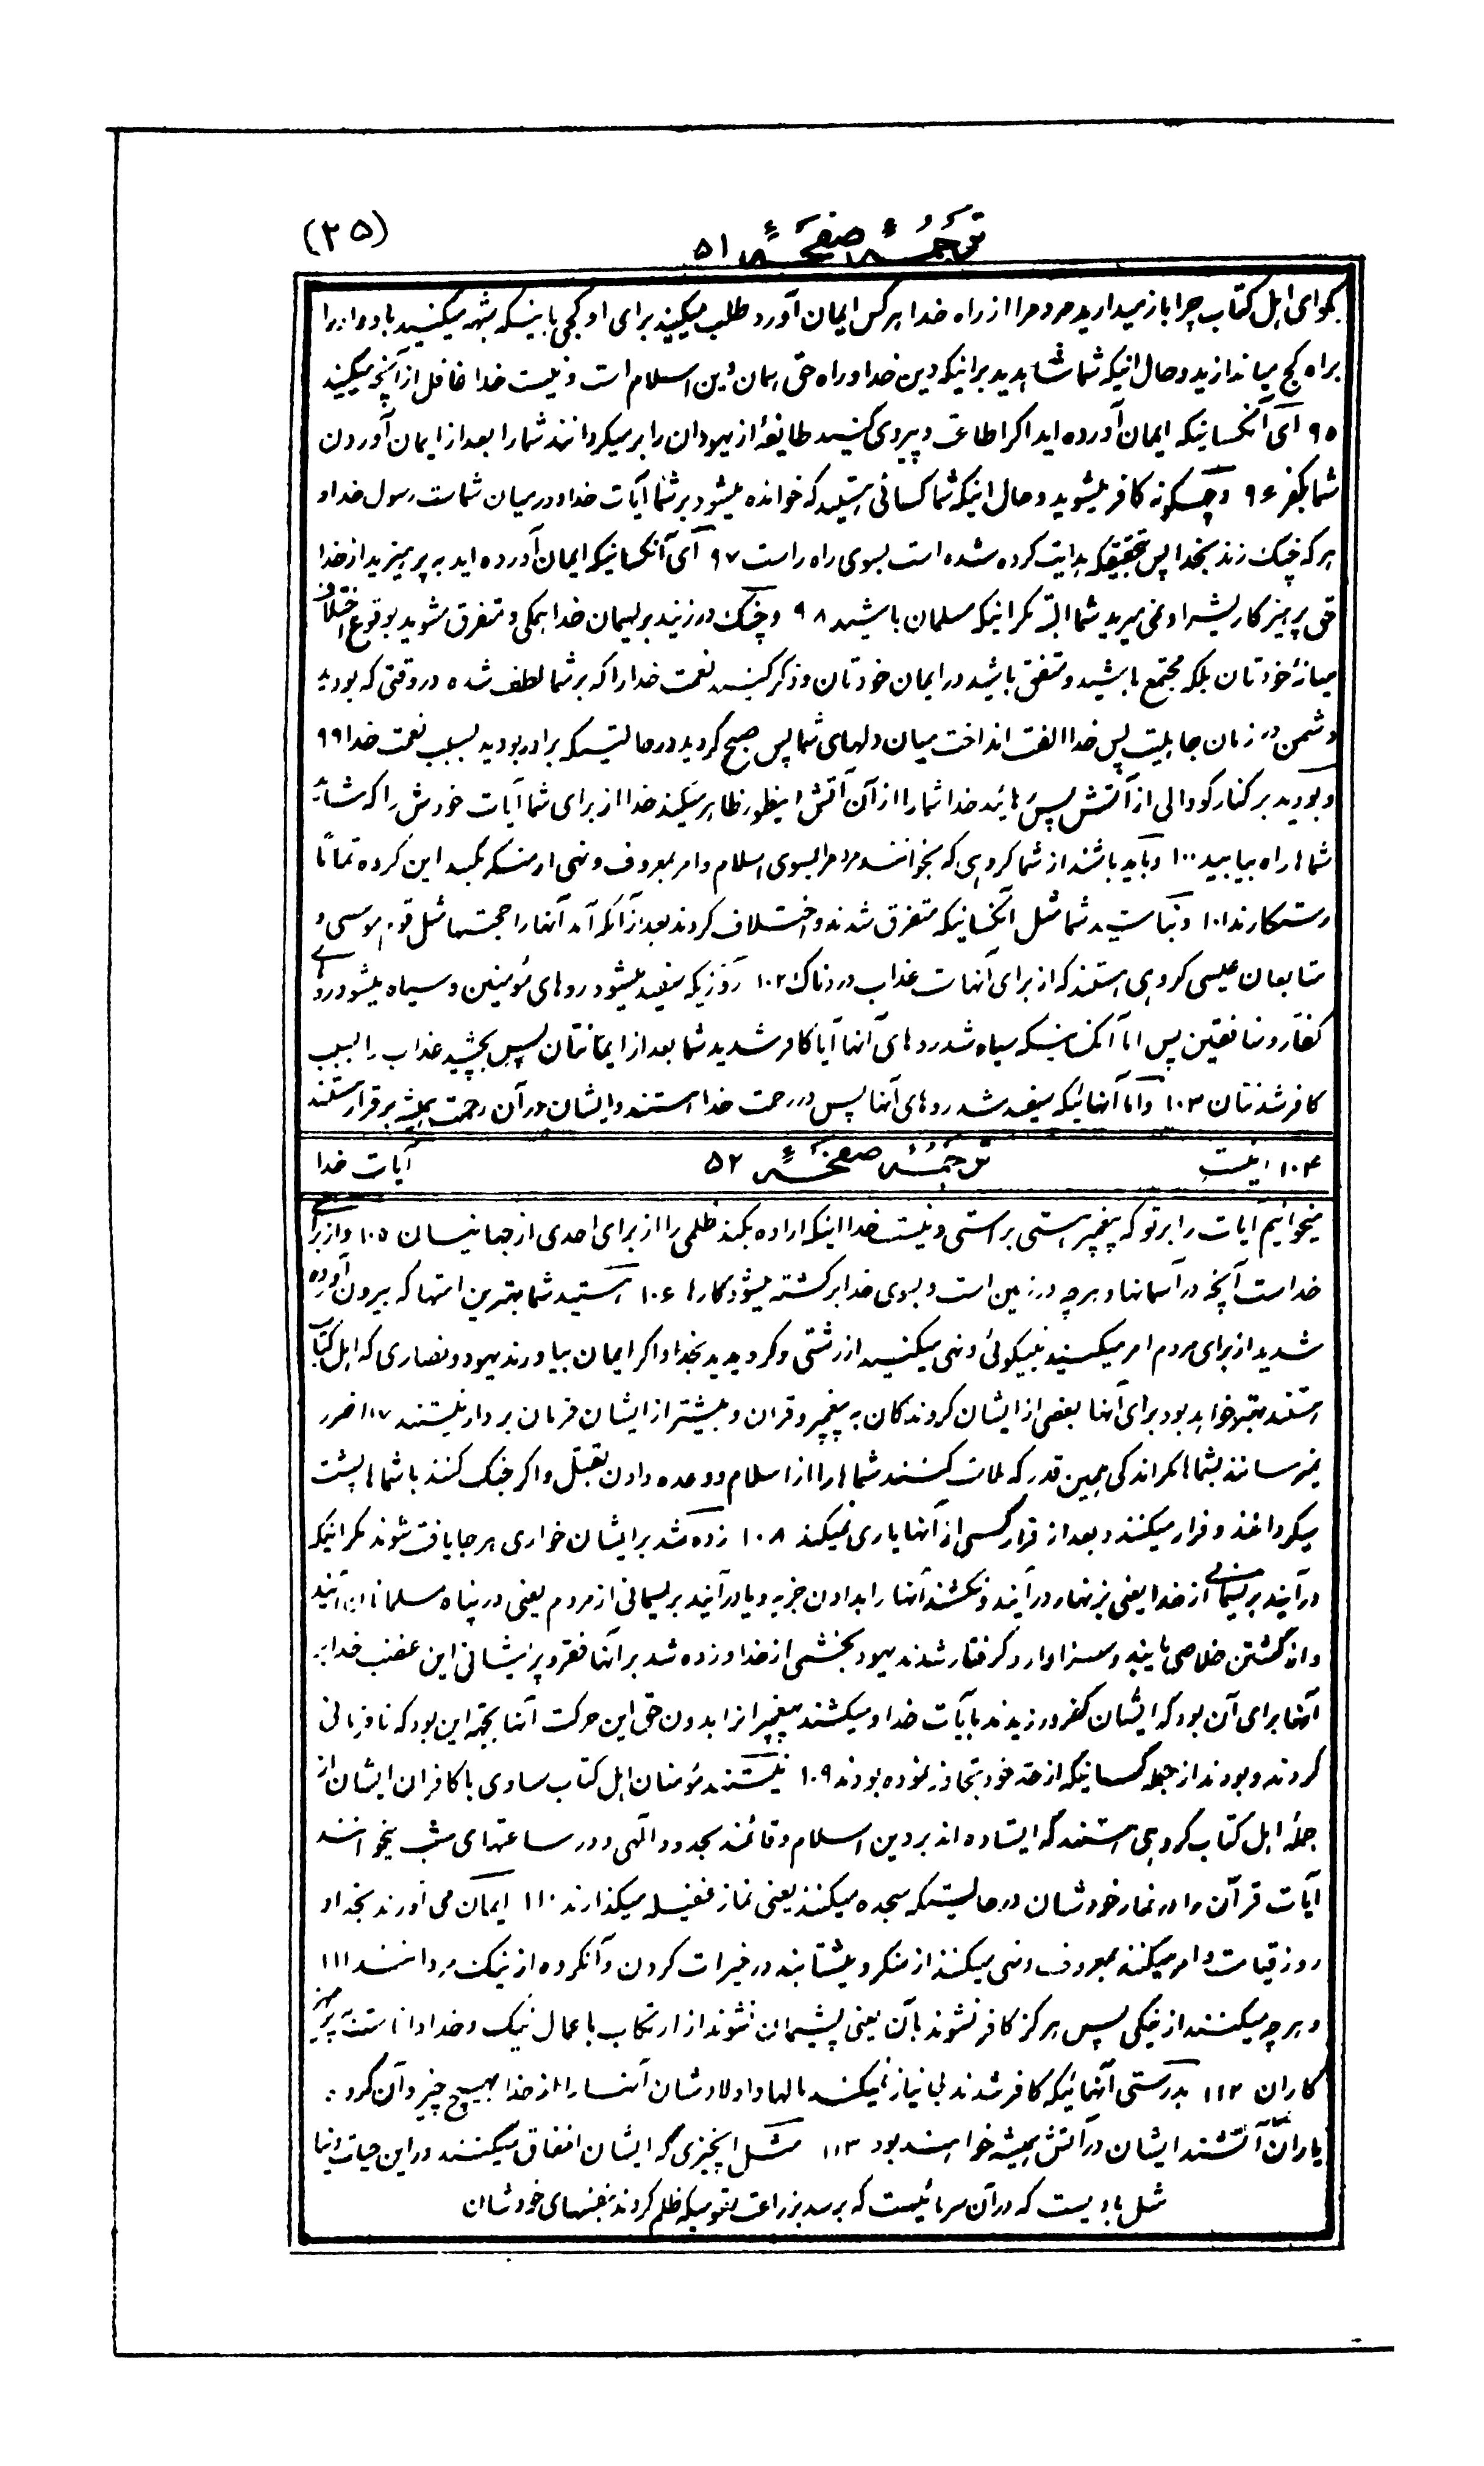 (۳۵)
ترجمهٔ صفحهٔ ۵۱
بگو ای اهل کتاب چرا باز میدارید مردمرا از راه خدا هر کس ایمان آورد طلب میکنید برای او کجی باینکه شبهه میکنید باو و او را
براه کج میاندازید و حال انیکه شما شاهدید برانیکه دین خدا و راه حق همان دین اسلام است و نیست خدا غافل از آنچه میکنید
۹۵ ای آنکسانیکه ایمان آورده اید اگر اطاعت و پیروی کنید طائفهٔ از یهودان را بر میگردانند شما را بعد از ایمان آوردن
شما بکفر ۹۶ و چگونه کافر میشوید و حال انیکه شما کسانی هستید که خوانده میشود بر شما آیات خدا و در میان شماست رسول خدا و
هر که چنک زند بخدا پس بتحقیقکه هدایت کرده شده است بسوی راه راست ۹۷ ای آنکسانیکه ایمان آورده اید به پرهیزید از خدا
حق پرهیزکاریشرا و نمی میرید شما البته مگر انیکه مسلمان باشید ۹۸ و چنک در زنید بریسمان خدا همکی و متفرق مشوید بوقوع اختلاف
میانهٔ خودتان بلکه مجتمع باشید و متفق باشید در ایمان خودتان و ذکر کنید نعمت خدا را که بر شما لطف شده در وقتی که بودید
دشمن در زمان جاهلیت پس خدا الفت انداخت میان دلهای شما پس صبح کردید در حالتیکه برادر بودید بسبب نعمت خدا ۹۹
و بودید بر کنار کودالی از آتش پس رهانید خدا شما را از آن آتش اینطور ظاهر میکند خدا از برای شما آیات خودش را که شاید
شماها راه بیابید ۱۰۰ و باید باشند از شما کروهی که بخوانند مردمرا بسوی اسلام و امر بمعروف و نهی از منکر بکنند این کرده تمامًا
رستکارند ۱۰۱ و نباشید شما مثل آنکسانیکه متفرق شدند و اختلاف کردند بعد از آنکه آمد آنها را حجتها مثل قوم موسی و
متابعان عیسی کروهی هستند که از برای آنهاست عذاب دردناک ۱۰۲ روزیکه سفید میشود روهای مؤمنین و سیاه میشود روهای
کفار و منافقین پس اما آنکسانیکه سیاه شد روهای آنها آیا کافر شدید شما بعد از ایمانتان پس بچشید عذاب را بسبب
کافر شدنتان ۱۰۳ و اما آنهائیکه سفید شد روهای آنها پس در رحمت خدا هستند و ایشان در آن رحمت همیشه برقرار هستند
۱۰۴ اینست ترجمهٔ صفحهٔ ۵۲ آیات خدا
میخوانیم آیات را بر تو که پیغمبر هستی براستی و نیست خدا اینکه اراده بکند ظلمی را از برای احدی از جهانیان ۱۰۵ و از برای
خداست آنچه در آسمانها و هر چه در زمین است و بسوی خدا برکشته میشود کارها ۱۰۶ هستید شما بهترین امتها که بیرون آورده
شدید از برای مردم امر میکنید بنیکوئی و نهی میکنید از زشتی و کرویدید بخدا و اکر ایمان بیاورند یهود و نصاری که اهل کتاب
هستند بهتر خواهد بود برای آنها بعضی از ایشان کروندکان به پیغمبر و قران و بیشتر از ایشان فرمان بردار نیستند ۱۰۷ ضرر
نمیرسانند بشماها مکر اندکی همین قدر که ملامت کنند شماها را از اسلام و وعده دادن بقتل و اکر جنک کنند با شماها پشت
میکردانند و فرار میکنند و بعد از فرار کسی از آنها یاری نمیکند ۱۰۸ زده شد بر ایشان خواری هر جا یافت شوند مکر انیکه
درآیند بریسمانی از خدا یعنی بزنهار درآیند و نکشند آنها را بدادن جزیه و یا درآیند بریسمانی از مردم یعنی در پناه مسلمانان آیند
و از کشتن خلاصی یابند و سزاوار و کرفتار شدند یهود بخشمی از خدا و زده شد بر آنها فقر و پریشانی این غضب خدا بر
آنها برای آن بود که ایشان کفر ورزیدند بآیات خدا و میکشند پیغمبرانرا بدون حق این حرکت آنها بجهة این بود که نافرمانی
کردند و بودند از جمله کسانیکه از حد خود تجاوز نموده بودند ۱۰۹ نیستند مؤمنان اهل کتاب مساوی با کافران ایشان از
جملهٔ اهل کتاب کروهی هستند که ایستاده اند بر دین اسلام و قائمند بحدود الهی و در ساعتهای شب میخوانند
آیات قرآن را در نماز خودشان در حالتیکه سجده میکنند یعنی نماز غفیله میکذارند ۱۱۰ ایمان می آورند بخدا و
روز قیامت و امر میکنند بمعروف و نهی میکنند از منکر و میشتابند در خیرات کردن و آنکروه از نیک مردانند ۱۱۱
و هر چه میکنند از نیکی پس هرکز کافر نشوند بآن یعنی پشیمان نشوند از ارتکاب باعمال نیک و خدا داناست به پرهیز
کاران ۱۱۲ بدرستی آنهائیکه کافر شدند بی نیاز نمیکند مالها و اولادشان آنها را از خدا بهیچ چیز و آن کروه
یاران آتشند ایشان در آتش همیشه خواهند بود ۱۱۳ مثل انچیزی که ایشان انفاق میکنند در این حیات دنیا
مثل بادیست که در آن سرمائیست که برسد بزراعت بقومیکه ظلم کردند بنفسهای خودشان